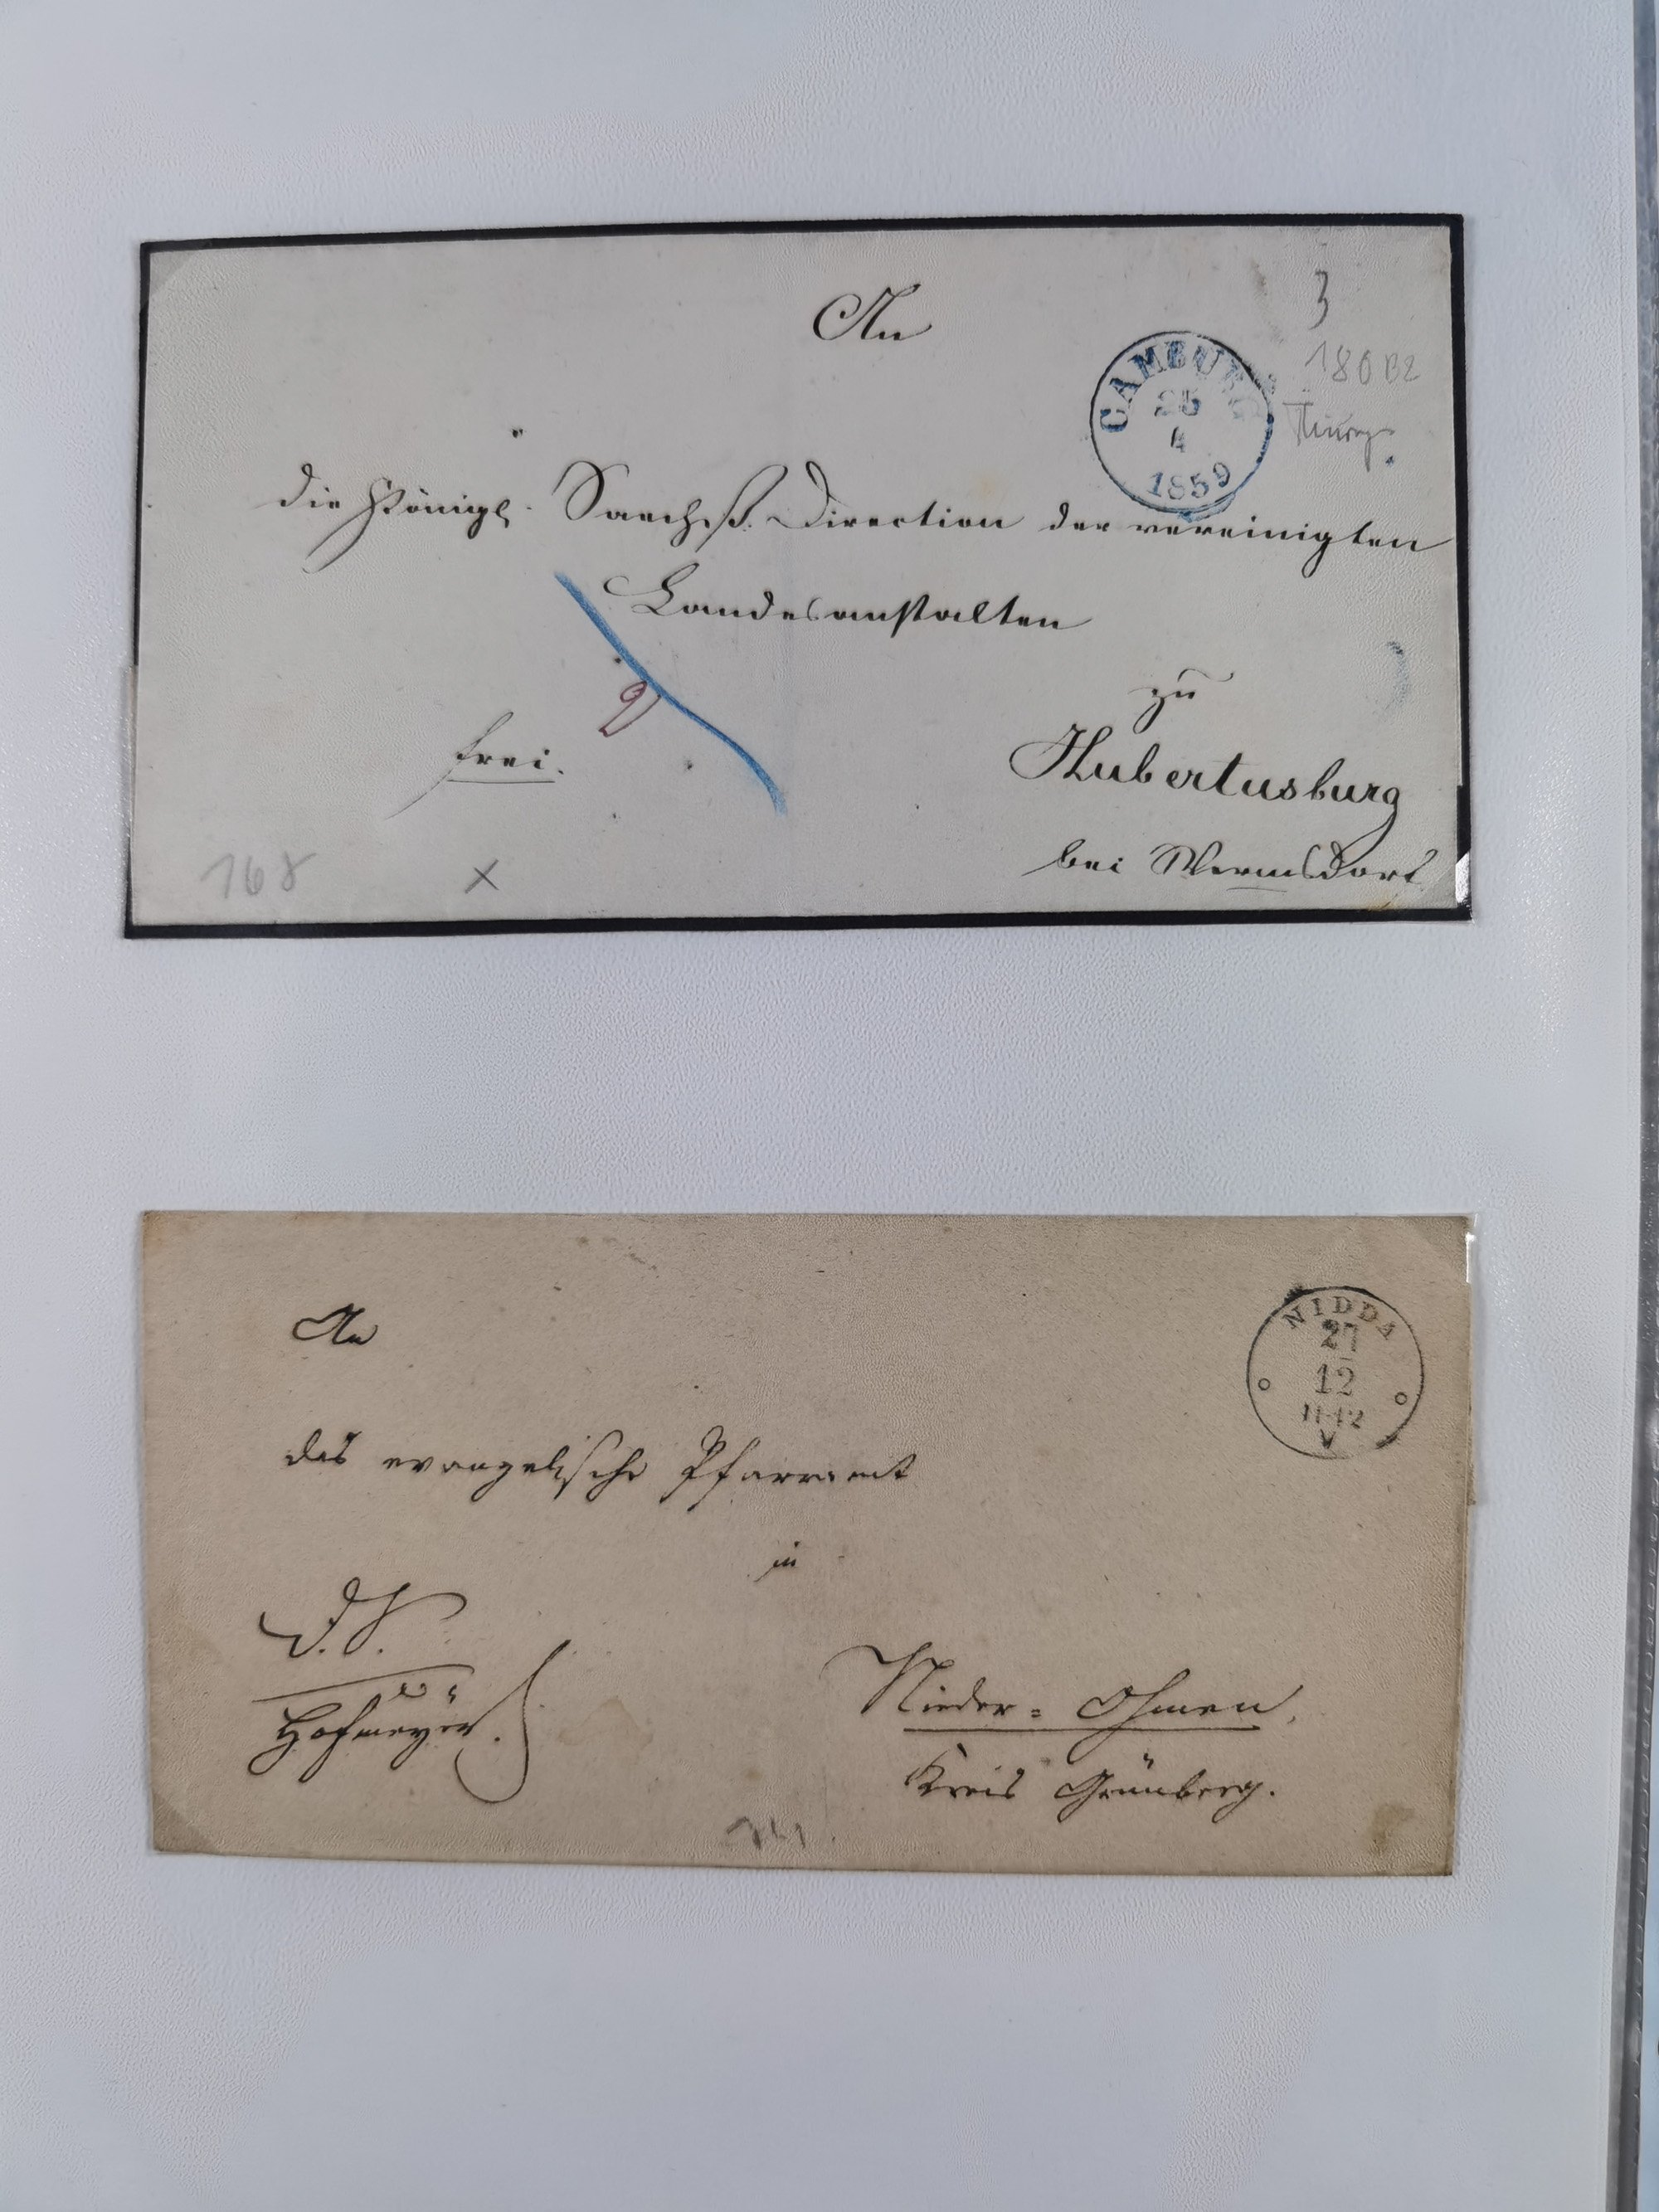 An
3
CAMBURG
25
4
1859
180
die Königl. Saechs. Direction der vereinigten
Landesanstalten
zu
frei.
Hubertusburg
bei Wermsdorf
168
x
An
NIDDA
27
12
11-12
V
das evangelische Pfarramt
in
D.S.
Hofmeyer.
Nieder=Ohmen,
Kreis Grünberg.